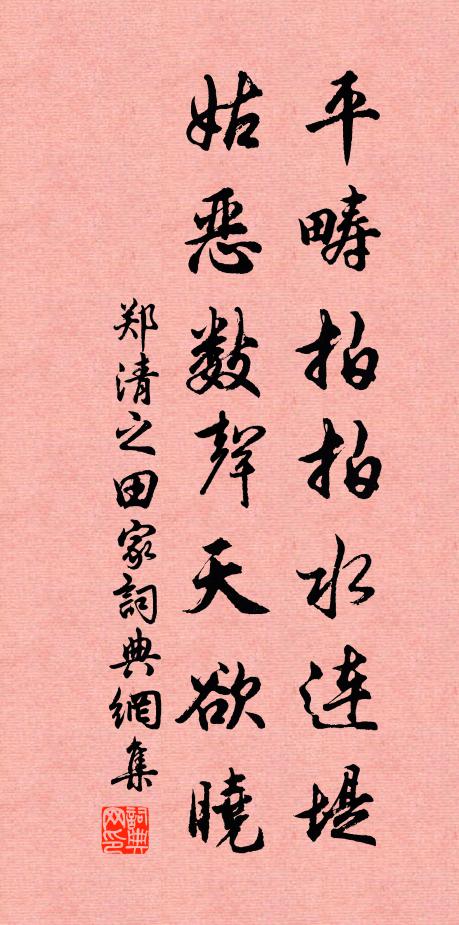 平畴拍拍水连堤
姑恶数声天欲晓
郑清之田家詞典網集
詞典网印